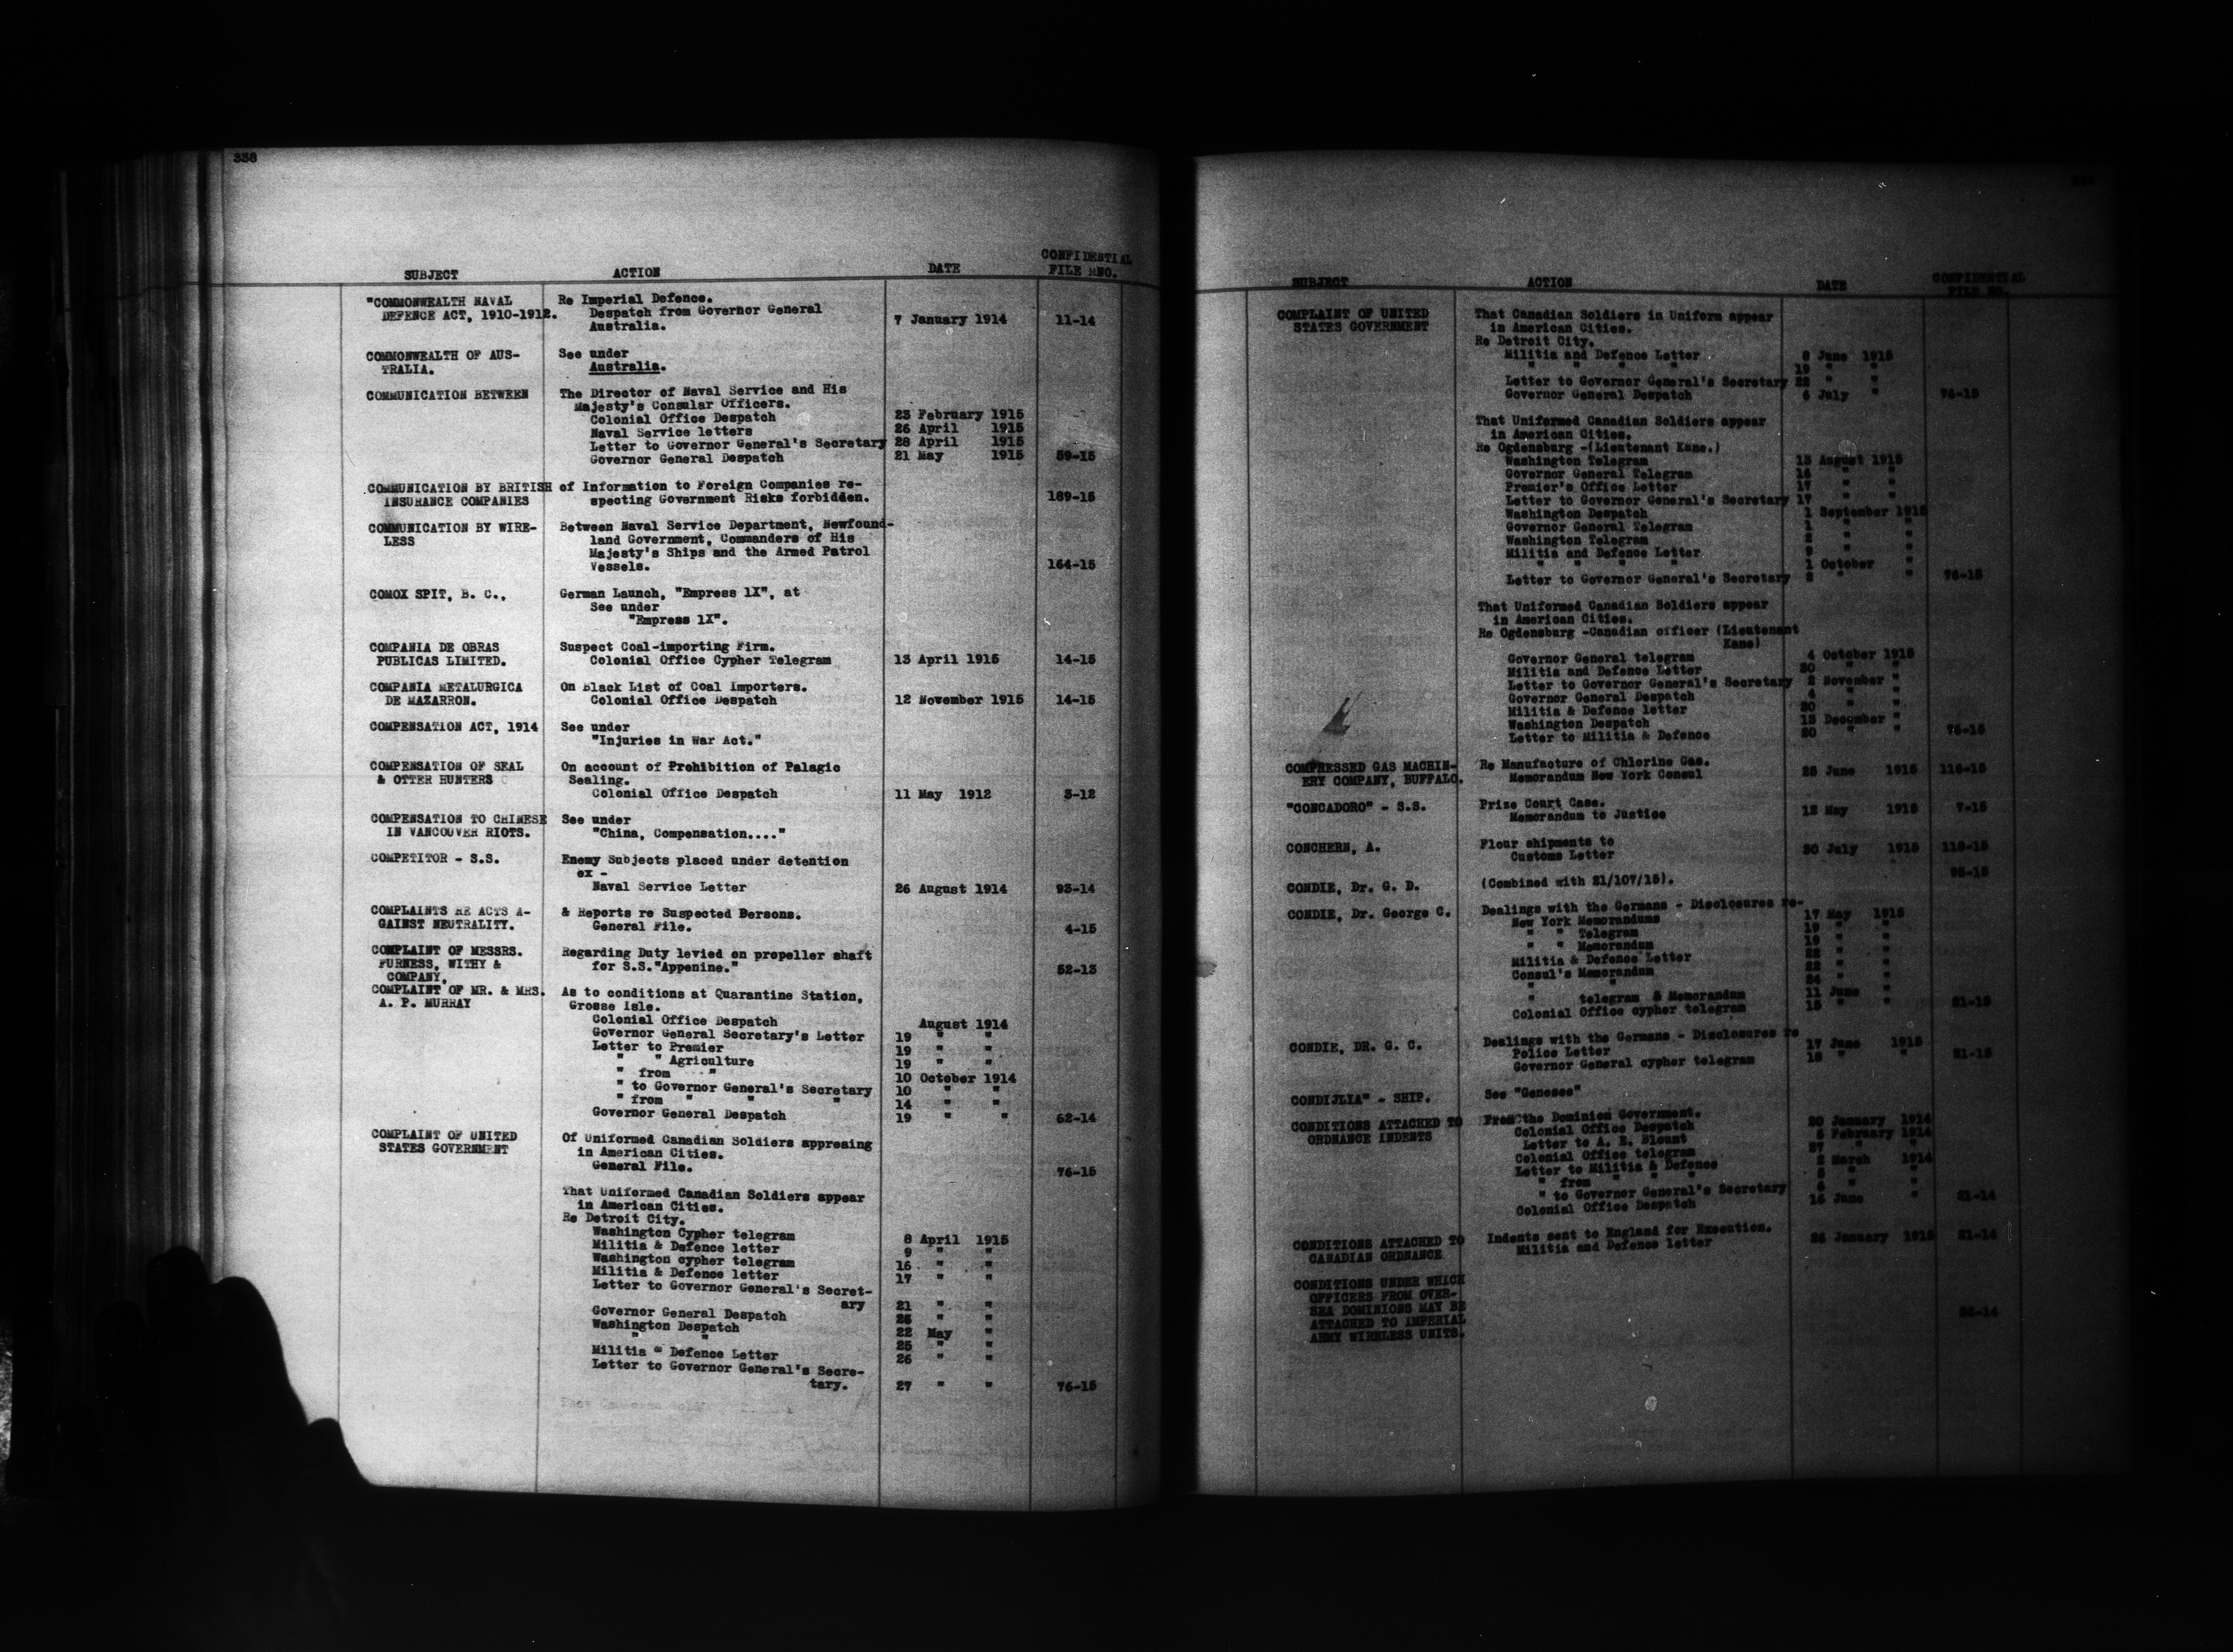 338
SUBJECT ACTION DATE CONFIDENTIAL
FILE NNO.
"COMMONWEALTH NAVAL Re Imperial Defence.
DEFENCE ACT, 1910-1912. Despatch from Governor General
Australia. 7 January 1914 11-14
COMMONWEALTH OF AUS- See under
TRALIA. Australia.
COMMUNICATION BETWEEN The Director of Naval Service and His
Majesty's Consular Officers.
Colonial Office Despatch 23 February 1915
Naval Service letters 26 April 1915
Letter to Governor General's Secretary 28 April 1915
Governor General Despatch 21 May 1915 59-15
COMMUNICATION BY BRITISH of Information to Foreign Companies re-
INSURANCE COMPANIES specting Government Risks forbidden. 189-15
COMMUNICATION BY WIRE- Between Naval Service Department, Newfound-
LESS land Government, Commanders of His
Majesty's Ships and the Armed Patrol
Vessels. 164-15
COMOX SPIT, B. C., German Launch, "Empress 1X", at
See under
"Empress 1X".
COMPANIA DE OBRAS Suspect Coal-importing Firm.
PUBLICAS LIMITED. Colonial Office Cypher Telegram 13 April 1915 14-15
COMPANIA METALURGICA On Black List of Coal Importers.
DE MAZARRON. Colonial Office Despatch 12 November 1915 14-15
COMPENSATION ACT, 1914 See under
"Injuries in War Act."
COMPENSATION OF SEAL On account of Prohibition of Palagic
& OTTER HUNTERS Sealing.
Colonial Office Despatch 11 May 1912 3-12
COMPENSATION TO CHINESE See under
IN VANCOUVER RIOTS. "China, Compensation...."
COMPETITOR - S.S. Enemy Subjects placed under detention
ex -
Naval Service Letter 26 August 1914 93-14
COMPLAINTS RE ACTS A- & Reports re Suspected Persons.
GAINST NEUTRALITY. General File. 4-15
COMPLAINT OF MESSRS. Regarding Duty levied on propeller shaft
FURNESS, WITHY & for S.S."Appenine." 52-13
COMPANY,
COMPLAINT OF MR. & MRS. As to conditions at Quarantine Station,
A. P. MURRAY Grosse Isle.
Colonial Office Despatch August 1914
Governor General Secretary's Letter 19 " "
Letter to Premier 19 " "
" " Agriculture 19 " "
" from " 10 October 1914
" to Governor General's Secretary 10 " "
" from " " " 14 " "
Governor General Despatch 19 " " 62-14
COMPLAINT OF UNITED Of Uniformed Canadian Soldiers appreaing
STATES GOVERNMENT in American Cities.
General File. 76-15
That Uniformed Canadian Soldiers appear
in American Cities.
Re Detroit City.
Washington Cypher telegram 8 April 1915
Militia & Defence letter 9 " "
Washington cypher telegram 16 " "
Militia & Defence letter 17 " "
Letter to Governor General's Secret-
ary 21 " "
Governor General Despatch 26 " "
Washington Despatch 22 May "
" " 25 " "
Militia & Defence Letter 26 " "
Letter to Governor General's Secre-
tary. 27 " " 76-15
SUBJECT ACTION DATE CONFIDENTIAL
FILE NO.
COMPLAINT OF UNITED That Canadian Soldiers in Uniform appear
STATES GOVERNMENT in American Cities.
Re Detroit City.
Militia and Defence Letter 8 June 1915
" " " " 19 " "
Letter to Governor General's Secretary 22 " "
Governor General Despatch 6 July " 76-15
That Uniformed Canadian Soldiers appear
in American Cities.
Re Ogdensburg -(Lieutenant Kane.)
Washington Telegram 13 August 1915
Governor General Telegram 16 " "
Premier's Office Letter 17 " "
Letter to Governor General's Secretary 17 " "
Washington Despatch 1 September 1915
Governor General Telegram 1 " "
Washington Telegram 2 " "
Militia and Defence Letter 9 " "
" " " " 1 October "
Letter to Governor General's Secretary 2 " " 76-15
That Uniformed Canadian Soldiers appear
in American Cities.
Re Ogdensburg -Canadian officer (Lieutenant
Kane)
Governor General telegram 4 October 1915
Militia and Defence Letter 30 " "
Letter to Governor General's Secretary 2 November "
Governor General Despatch 4 " "
Militia & Defence letter 30 " "
Washington Despatch 15 December "
Letter to Militia & Defence 20 " " 76-15
COMPRESSED GAS MACHIN- Re Manufacture of Chlorine Gas.
ERY COMPANY, BUFFALO. Memorandum New York Consul 25 June 1915 116-15
"CONCADORO" - S.S. Prize Court Case.
Memorandum to Justice 12 May 1915 7-15
CONCHERN, A. Flour shipments to
Customs Letter 30 July 1915 118-15
CONDIE, Dr. G. D. (Combined with 21/107/15). 95-15
CONDIE, Dr. George C. Dealings with the Germans - Disclosures re-
New York Memorandums 17 May 1915
" " Telegram 19 " "
" " Memorandum 19 " "
Militia & Defence Letter 22 " "
Consul's Memorandum 22 " "
" " 24 " "
" telegram & Memorandum 11 June "
Colonial Office cypher telegram 15 " " 21-15
CONDIE, DR. G. C. Dealings with the Germans - Disclosures re
Police Letter 17 June 1915
Governor General cypher telegram 18 " " 21-15
CONDIJLIA" - SHIP. See "Genesee"
CONDITIONS ATTACHED TO From the Dominion Government.
ORDNANCE INDENTS Colonial Office Despatch 20 January 1914
Letter to A. B. Blount 5 February 1914
Colonial Office telegram 27 " "
Letter to Militia & Defence 2 March 1914
" from " " " "
" to Governor General's Secretary " "
Colonial Office Despatch 16 June " 21-14
CONDITIONS ATTACHED TO Indents sent to England for Execution.
CANADIAN ORDNANCE Militia and Defence letter 26 January 1915 21-14
CONDITIONS UNDER WHICH
OFFICERS FROM OVER-
SEA DOMINIONS MAY BE
ATTACHED TO IMPERIAL
ARMY WIRELESS UNITS.